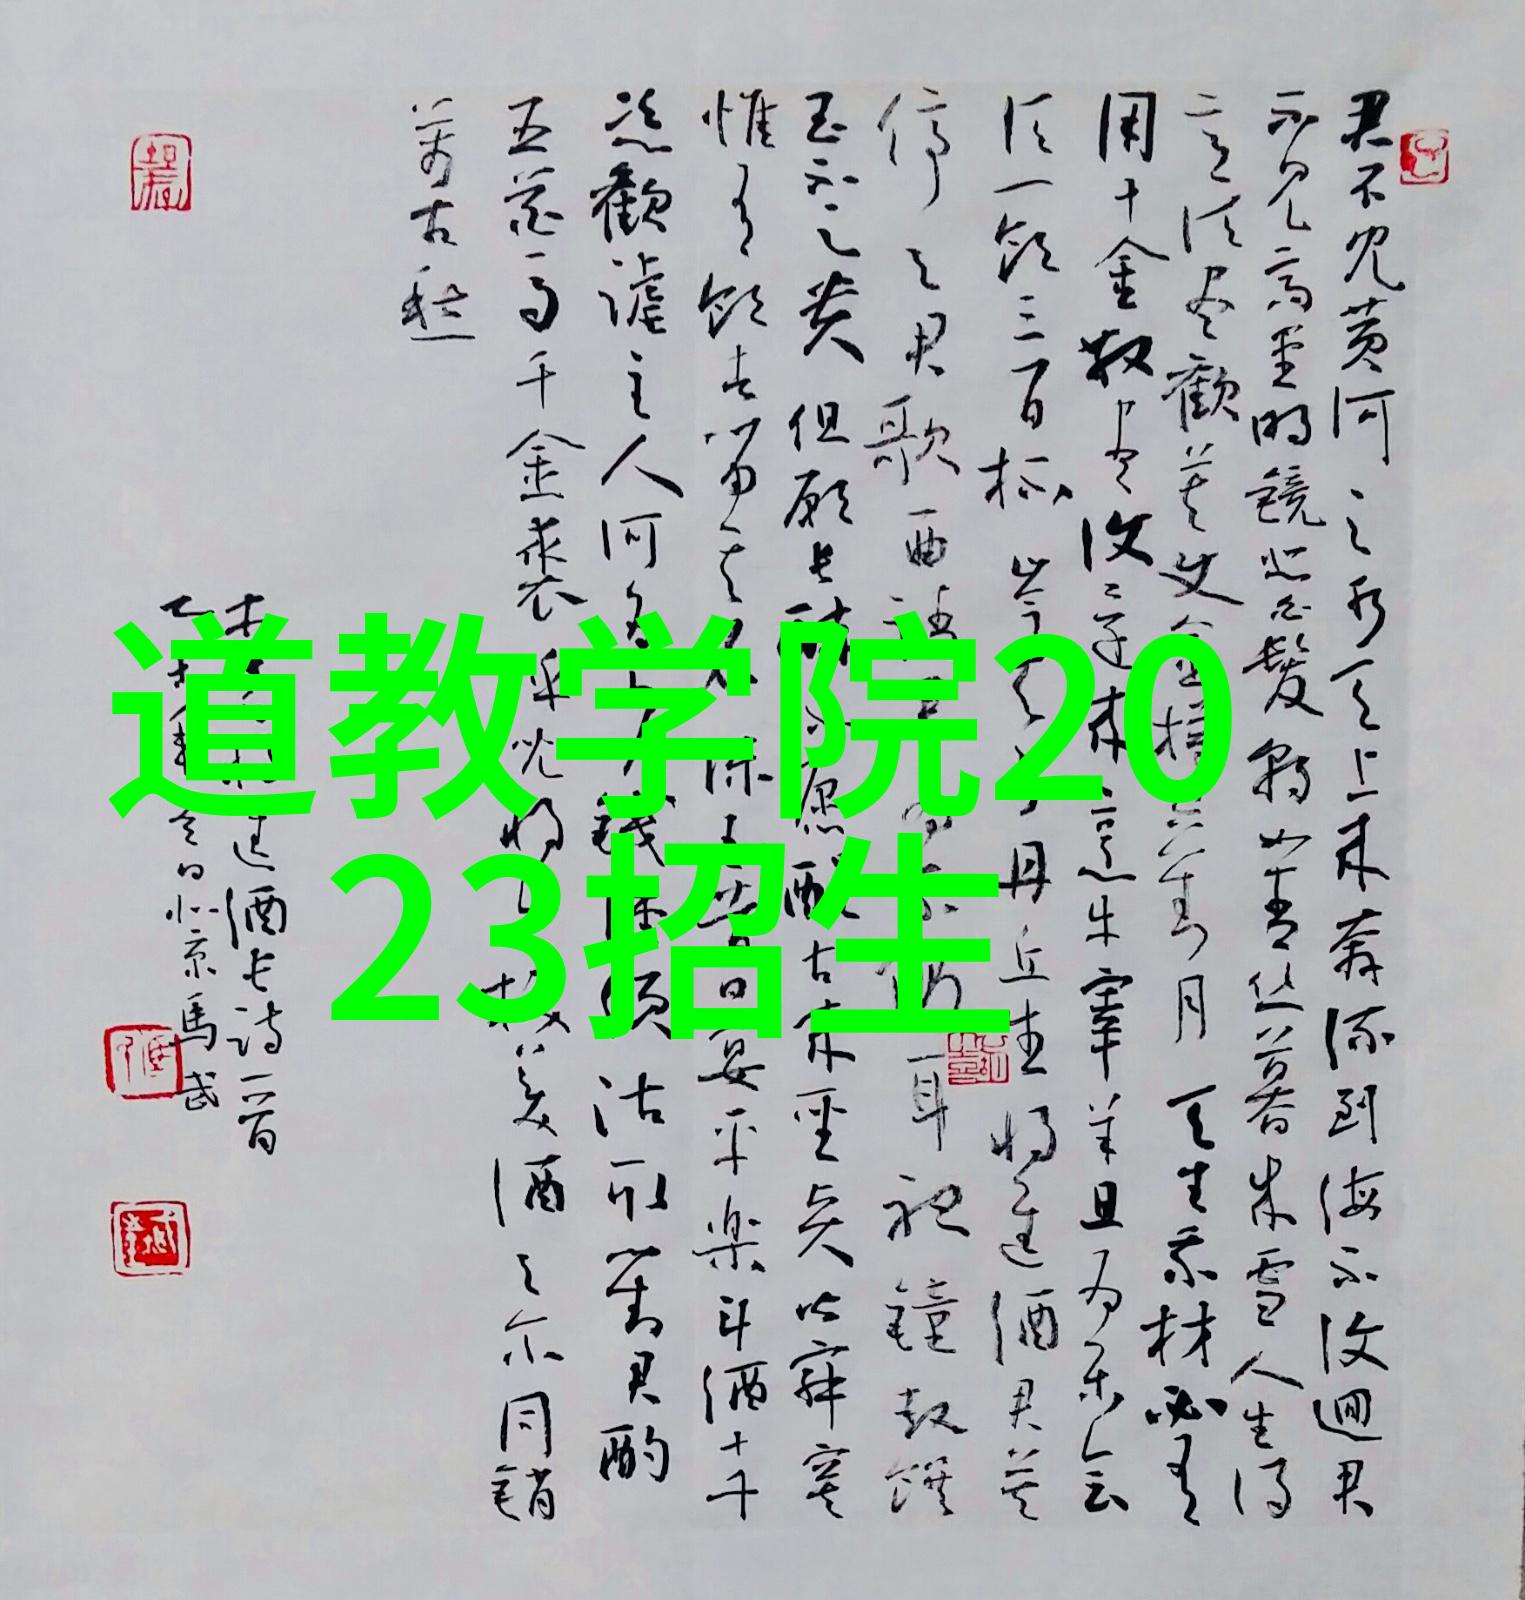 道教学院20
23招生
君不見黄河之水天上来奔流到海不復迴君
不見高堂明镜悲白髮朝如青丝暮成雪人生得
意须尽歡莫使金樽空對月天生我材必有
用千金散尽復還来烹牛宰羊且为乐会
须一飲三百杯岑夫子丹丘生将進酒君莫
停与君歌一曲請君为我倾耳聽鐘鼓饌
玉不足贵但願長醉不願醒古来聖贤皆寂寞
惟有飲者留其名陈王昔日宴平楽斗酒十千
恣歡謔主人何为言少錢径須沽取對君酌
五花马千金裘呼兒将出换美酒与尔同銷
萬古愁
李白将進酒長詩一首
乙未年 於京